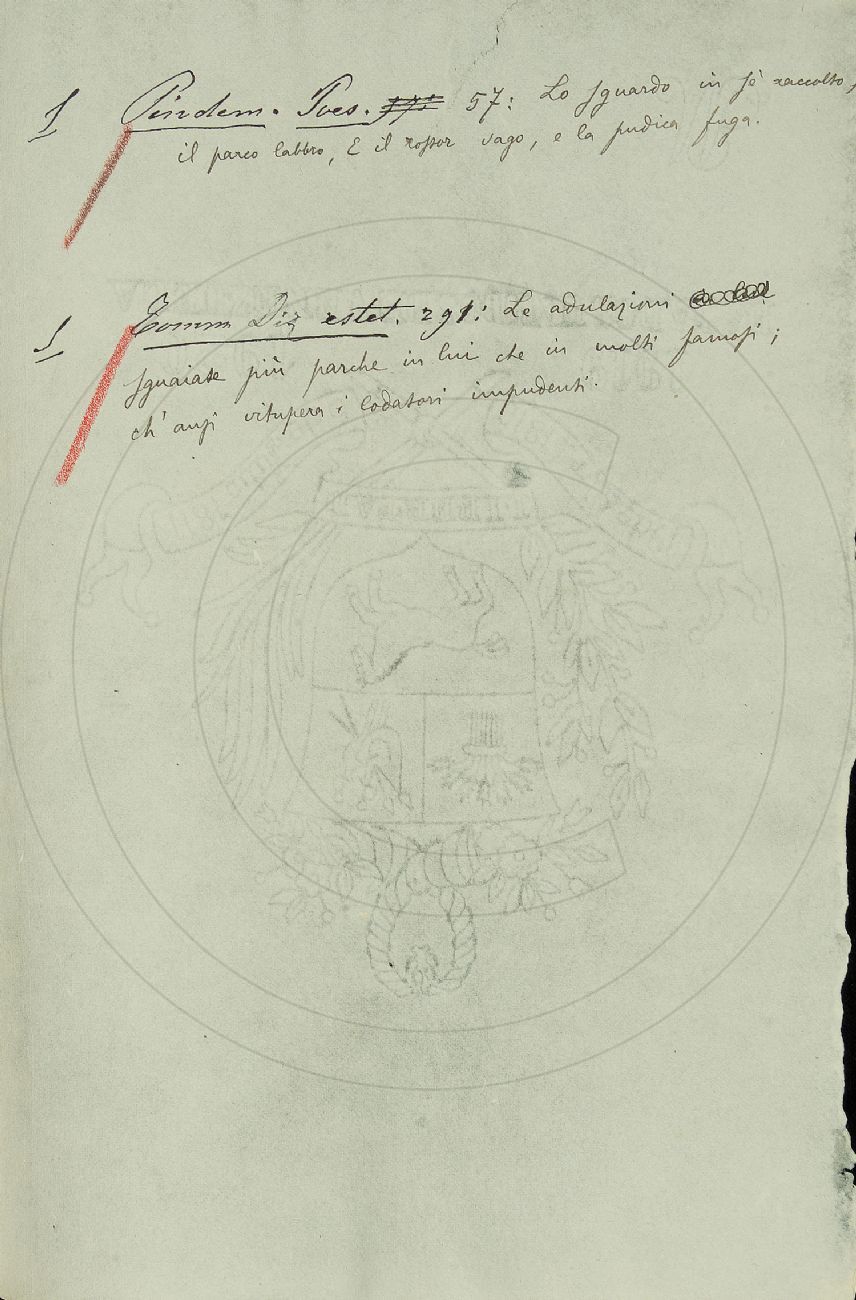 § Pindem. Poes. 57: Lo sguardo in sè raccolto,
il parco labbro, E il rossor vago, e la pudica fuga.
§ Tomm. Diz estet. 291: Le adulazioni
sguaiate più parche in lui che in molti famosi;
ch' anzi vitupera i lodatori impudenti.